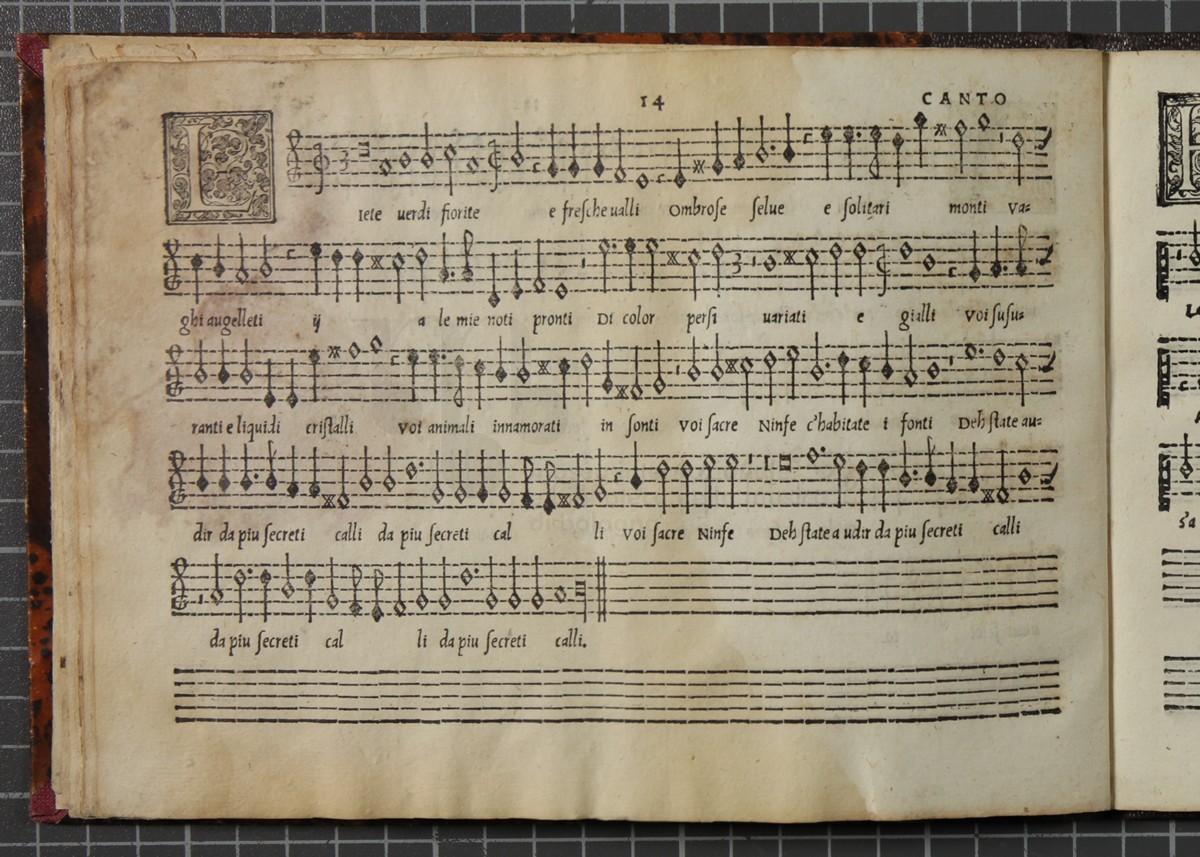 14 CANTO
L Iete uerdi fiorite e fresche ualli Ombrose selue e solitari monti Va=
ghi augelleti ij a le mie noti pronti Di color persi uariati e gialli Voi susu=
ranti e liquidi cristalli Voi animali innamorati in sonti Voi sacre Ninfe c'habitate i fonti Deh state au=
dir da piu secreti calli da piu secreti cal li Voi sacre Ninfe Deh state a udir da piu secreti calli
da piu secreti cal li da piu secreti calli.